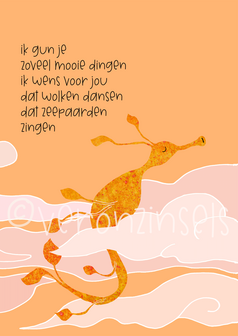 ik gun je
zoveel mooie dingen
ik wens voor jou
dat wolken dansen
dat zeepaarden
zingen
©veronzinsels